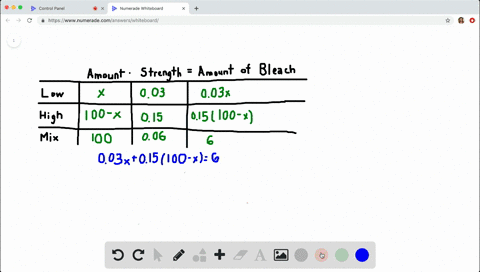 Control Panel
Numerade Whiteboard
https://www.numerade.com/answers/whiteboard/
Amount · Strength = Amount of Bleach
Low x 0.03 0.03x
High 100-x 0.15 0.15(100-x)
Mix 100 0.06 6
0.03x+0.15(100-x)=6